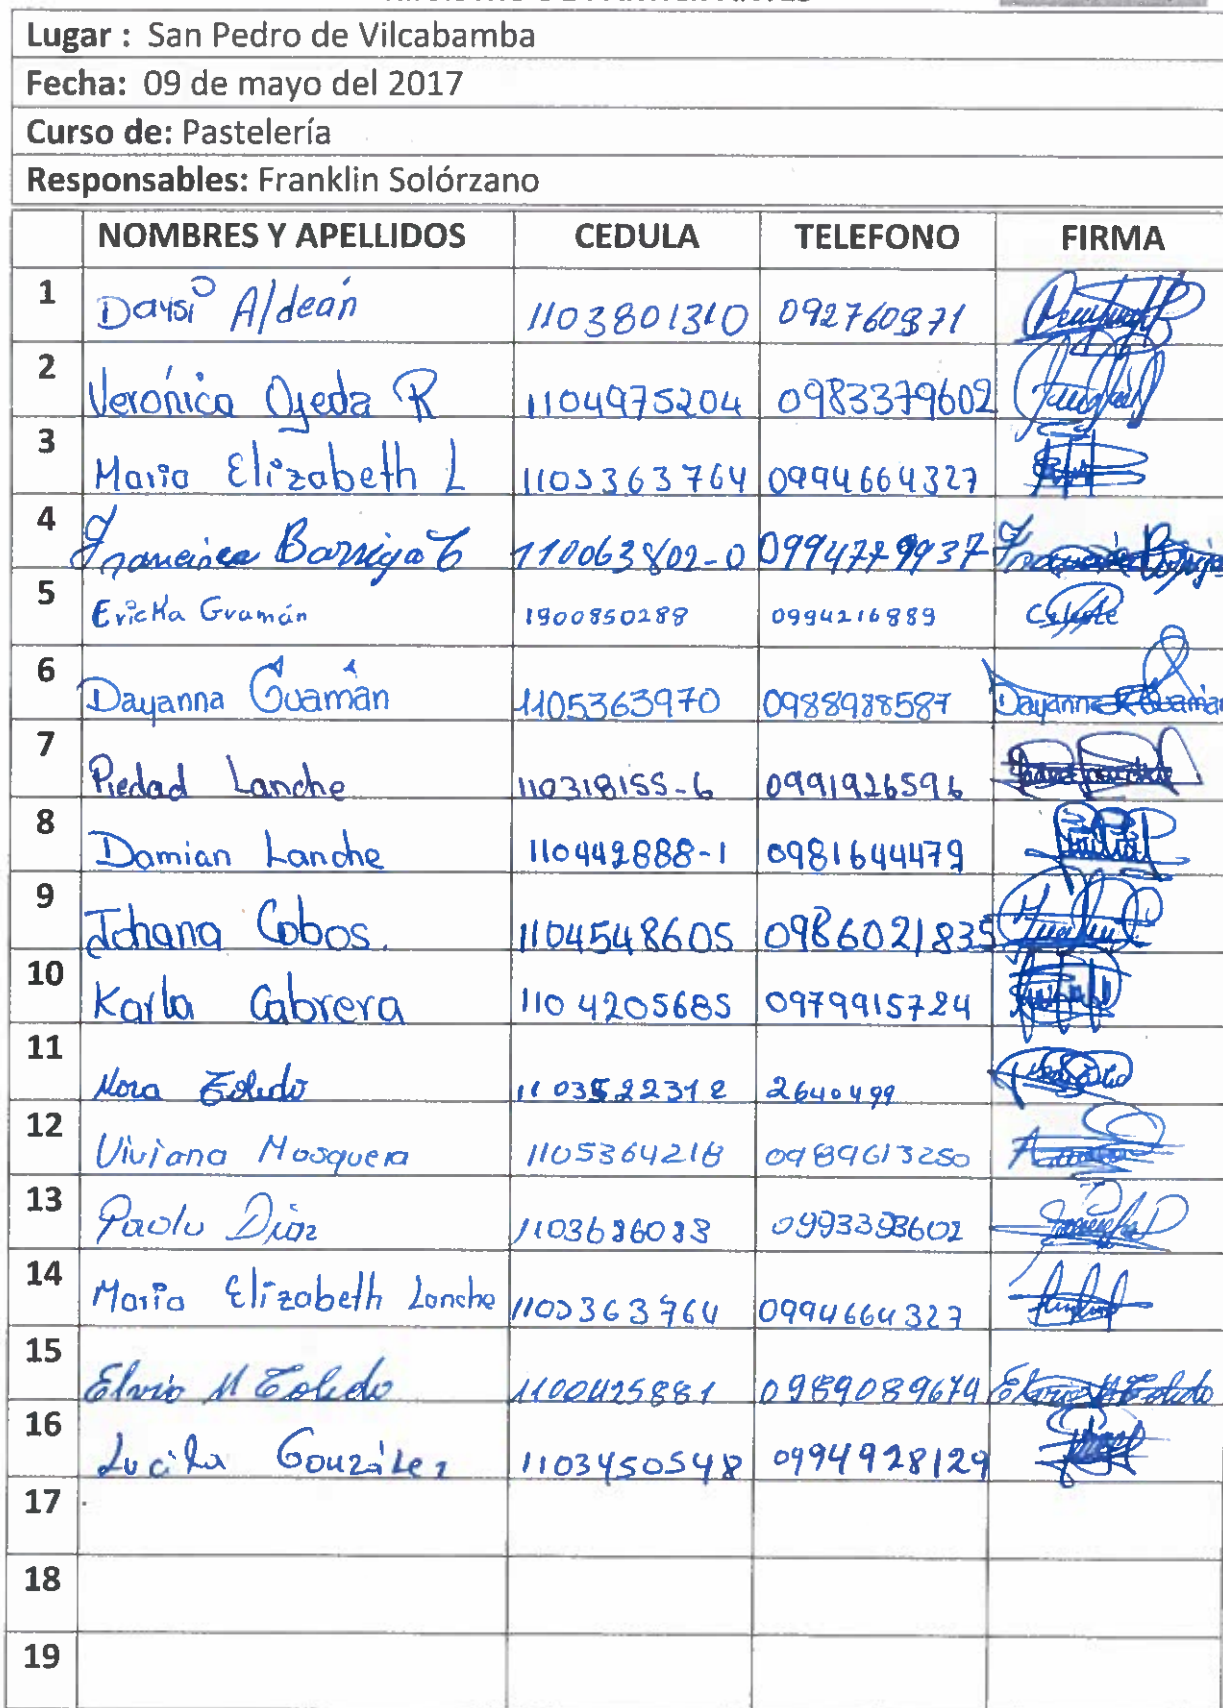 Lugar : San Pedro de Vilcabamba
Fecha: 09 de mayo del 2017
Curso de: Pastelería
Responsables: Franklin Solórzano
NOMBRES Y APELLIDOS CEDULA TELEFONO FIRMA
1 Daysi Aldeán 1103801310 092760971
2 Verónica Ojeda R 1104975204 0983379602
3 Maria Elizabeth L 1105363764 0994664327
4 Francisca Barriga C 110063802-0 0994779937
5 Ericka Guamán 1900850288 0994216889
6 Dayanna Guamán 1105363970 0988988587 Dayanna Guamán
7 Piedad Lanche 110318155-6 0991926596
8 Damian Lanche 110442888-1 0981644479
9 Johana Cobos. 1104548605 0986021835
10 Karla Cabrera 1104205685 0979915724
11 Nora Toledo 1103522312 2640499
12 Viviana Mosquera 1105364218 0989613250
13 Paola Diaz 0993393602
14 Maria Elizabeth Lanche 1105363764 0994664327
15 Elvio M Toledo 1100425881 0989089674 Elvio M Toledo
16 Lucila González 1103450548 0994928129
17
18
19